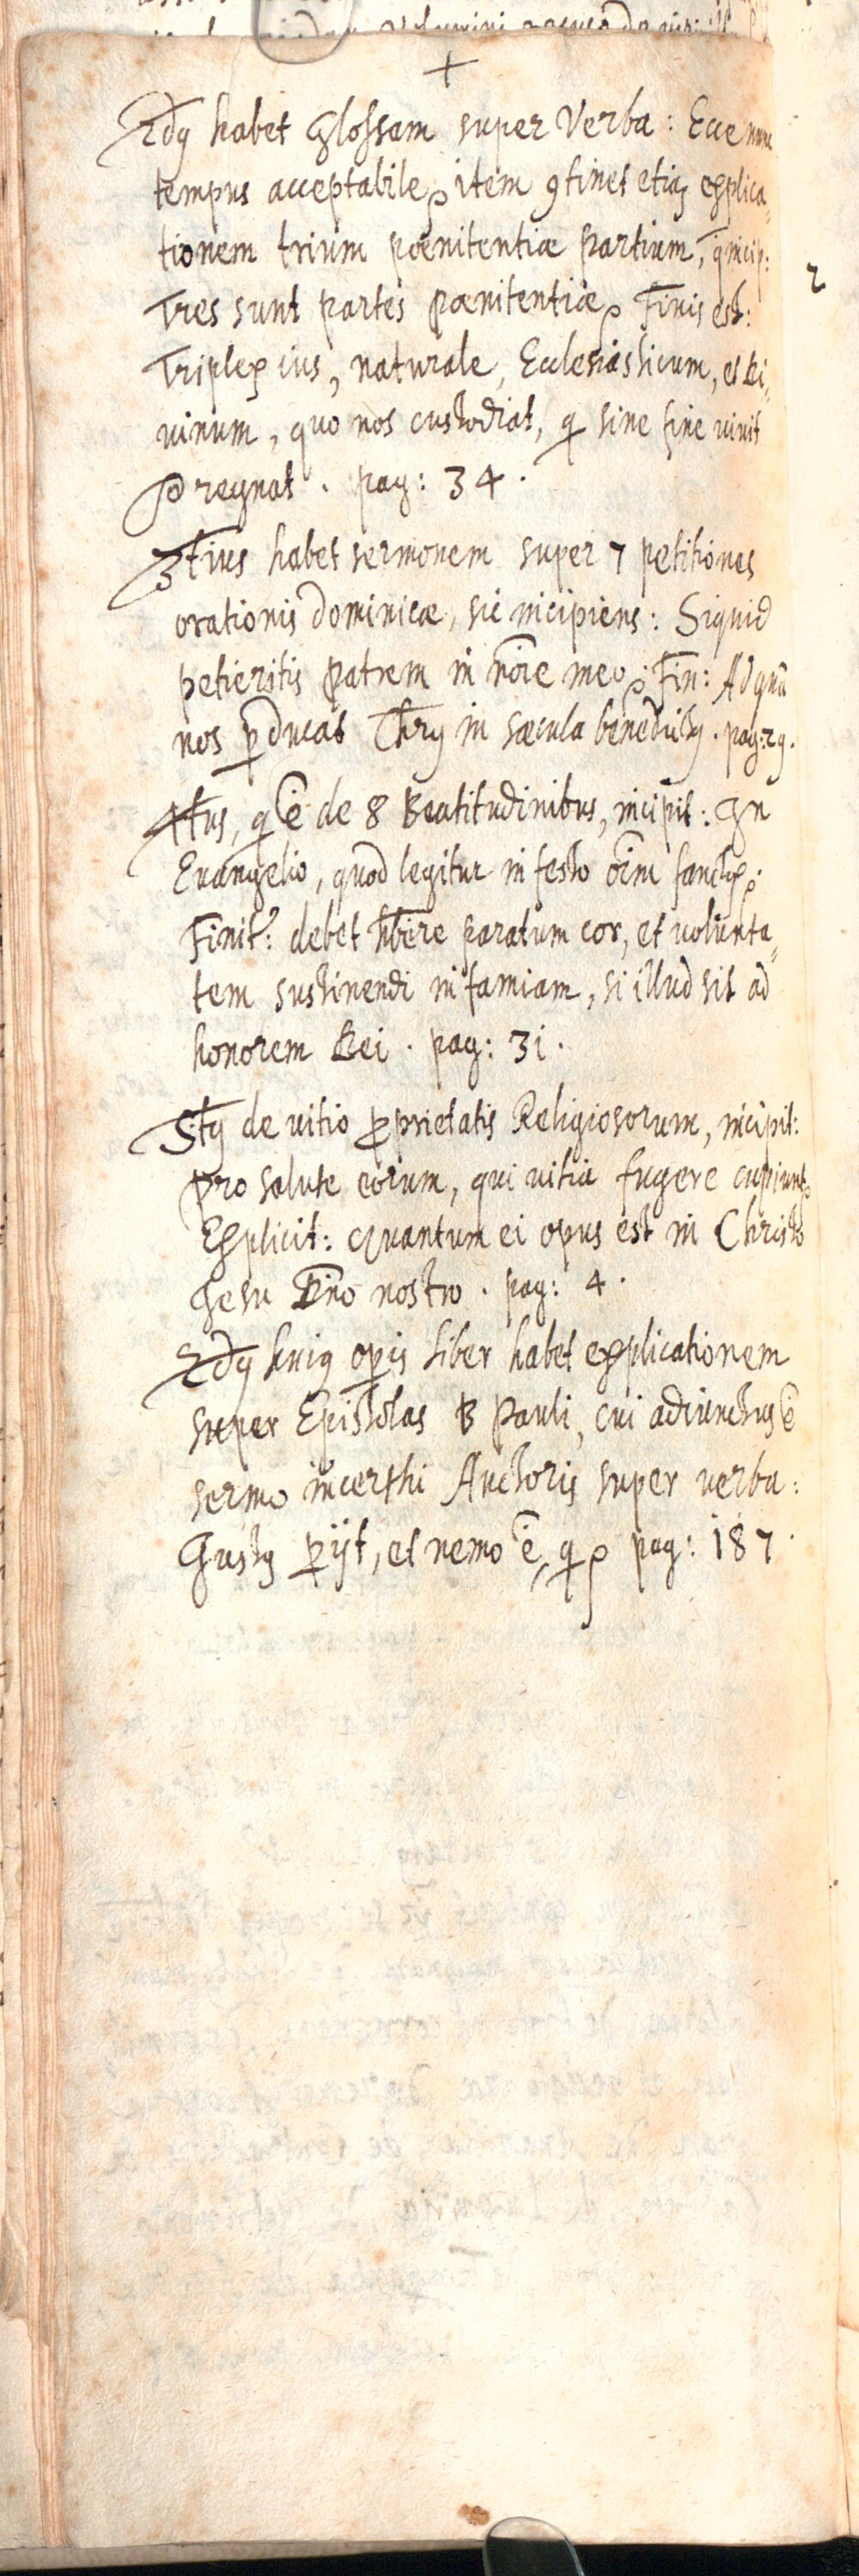 +
2dꝰ habet Glossam super Verba: Ecce nunc
tempus acceptabile, item ꝯtinet etiā explica-
tionem trium pœnitentiæ partium, q̄ incip:
Tres sunt partes pœnitentiæ. Finis est:
Triplex ius, naturale, Ecclesiasticum, et Di-
uinum, quo nos custodiat, q̄ sine fine uiuit
& regnat. pag: 34.
3tius habet sermonem super 7 petitiones
orationis dominicæ, sic incipiens: Siquid
petieritis patrem in nōīe meo. Fin: Ad quā
nos ꝑducat Chrꝰ in sæcula benedictꝰ. pag: 29.
4tus, q̄ ē de 8 Beatitudinibus, incipit: In
Euangelio, quod legitur in festo oīm sanctoꝝ.
Finit: debet hīēre paratum cor, et uolunta-
tem sustinendi infamiam, si illud sit ad
honorem Dei. pag: 3i.
5tꝰ de uitio ꝓprietatis Religiosorum, incipit:
Pro salute eorum, qui uitia fugere cupiunt.
Explicit: Quantum ei opus est in Christo
Iesu Dn̄o nostro. pag: 4.
2dꝰ huiꝰ oꝑis liber habet explicationem
super Epistolas B Pauli, cui adiunctus ē
sermo incerthi Auctoris super uerba:
Iustꝰ ꝑijt, et nemo ē, q̄. pag: i87.
2